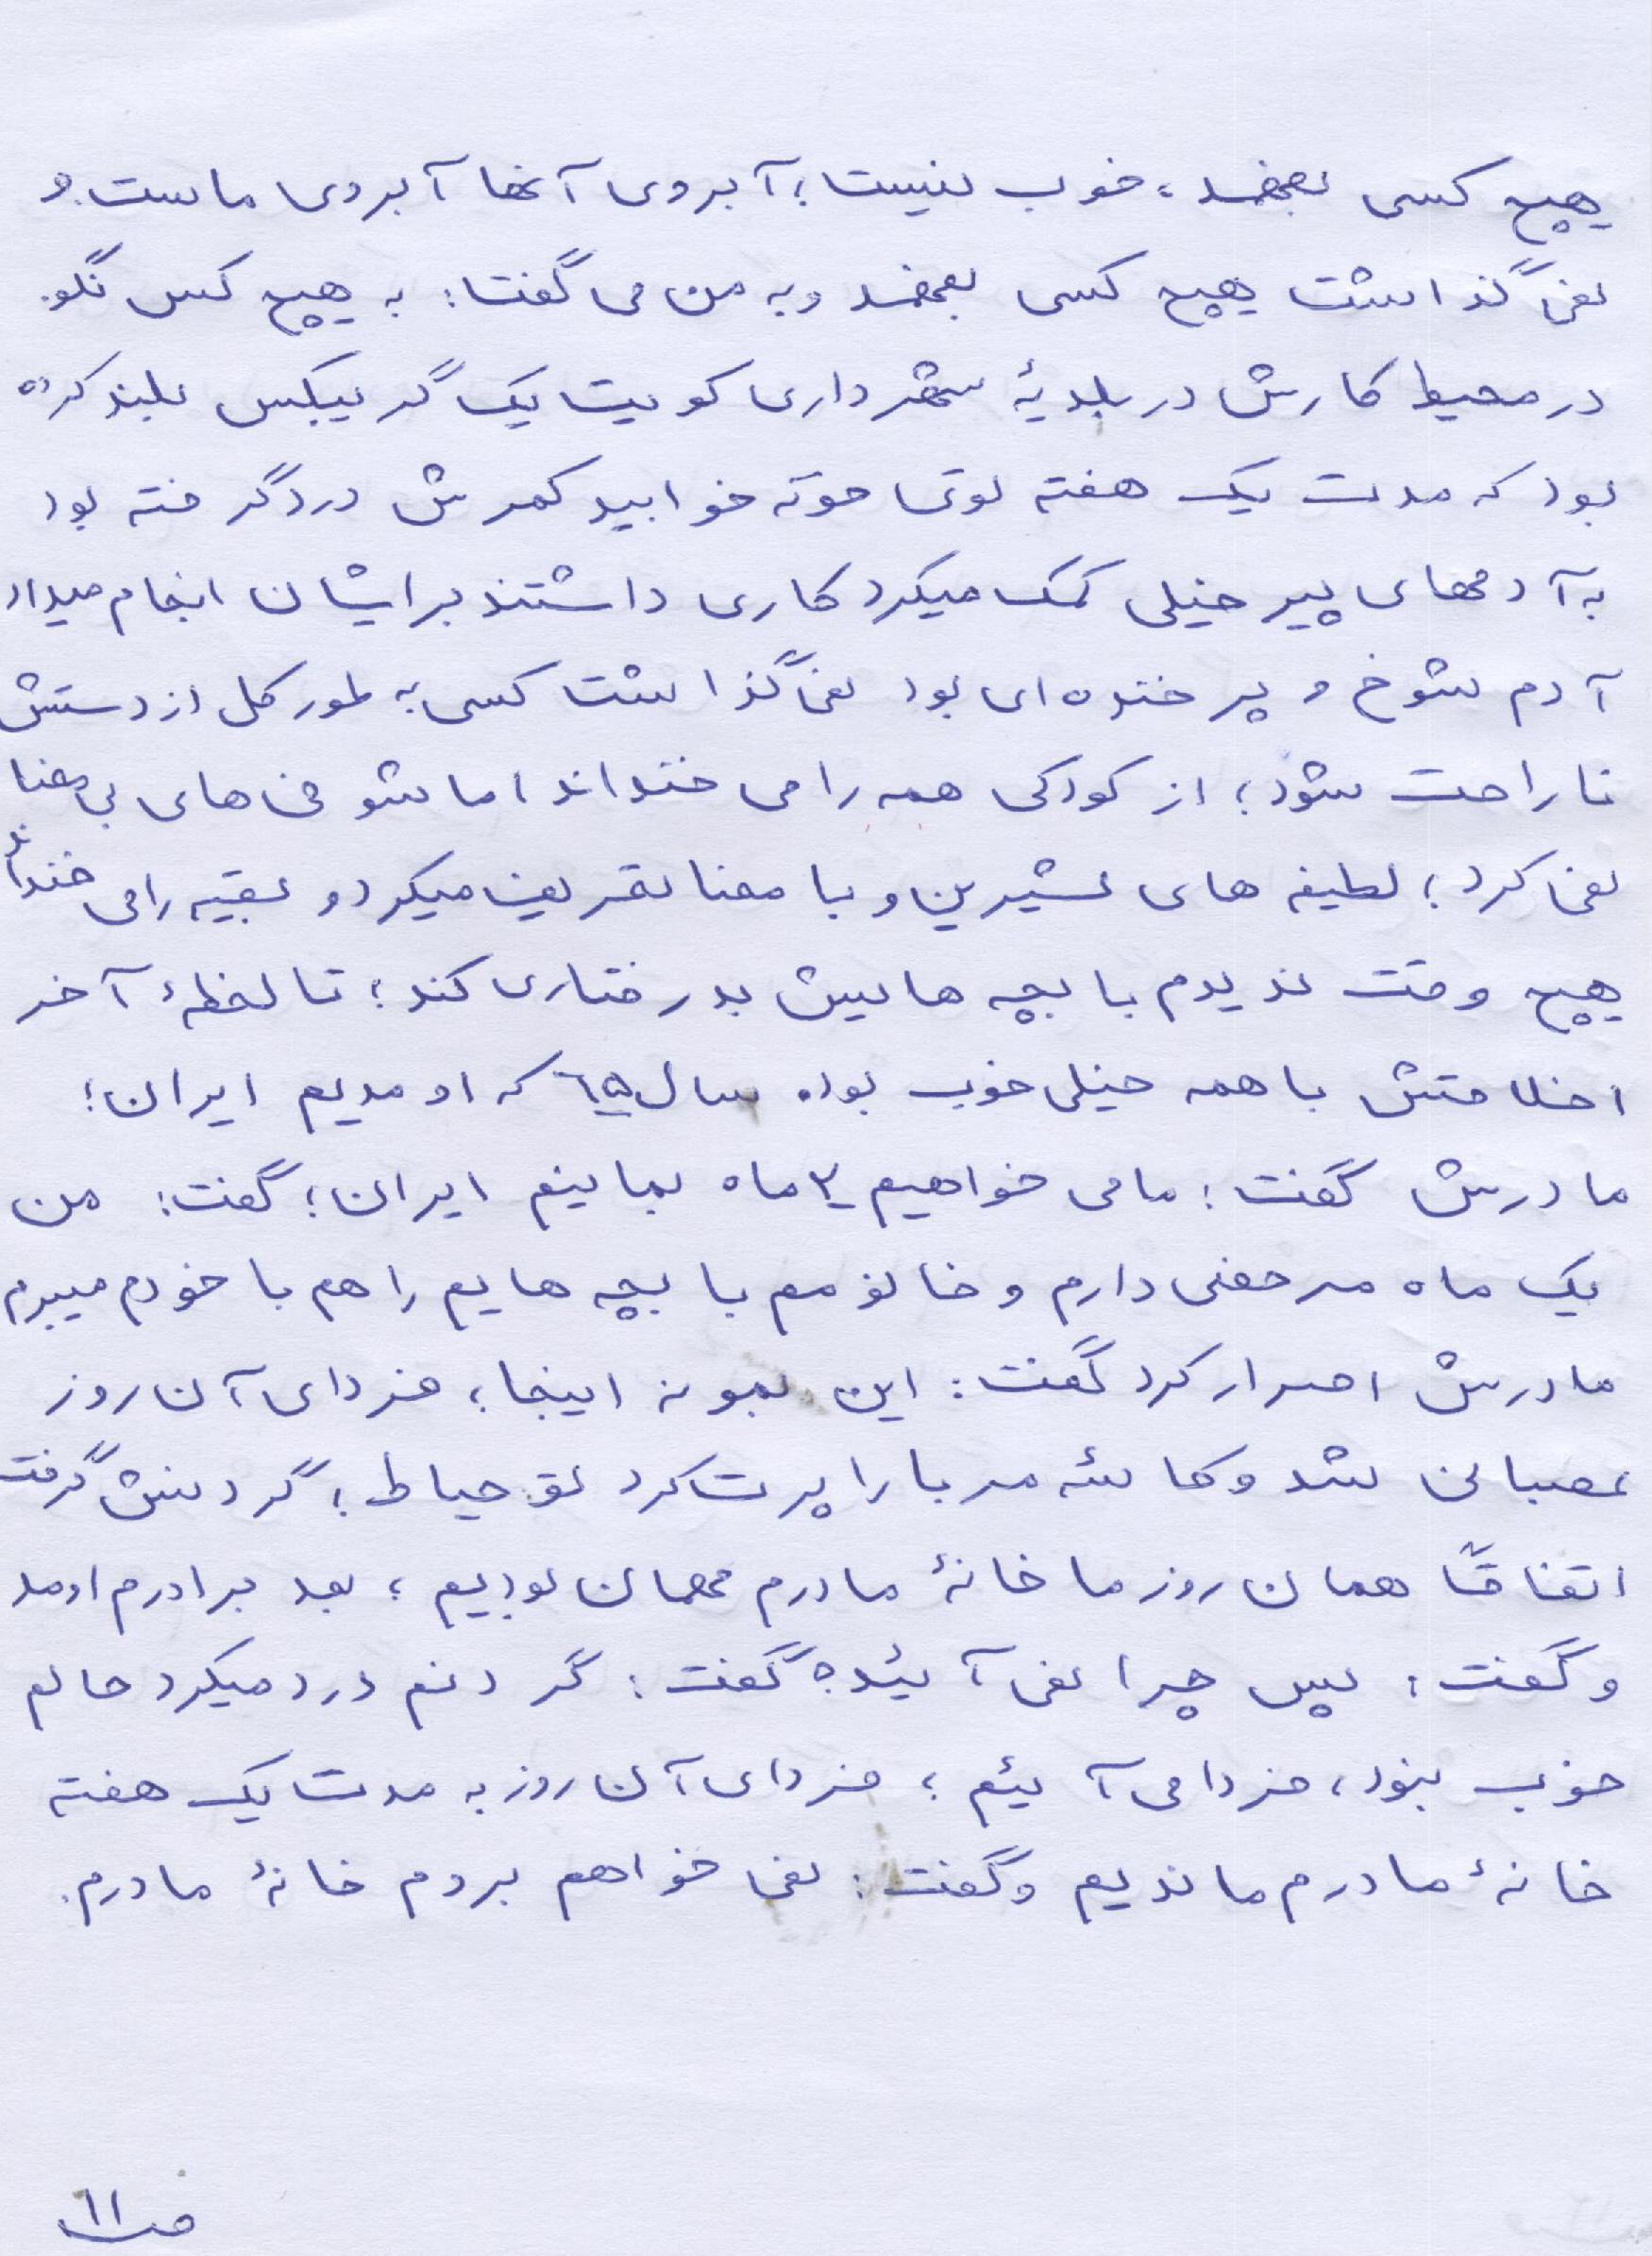 هیچ کسی بفهمد، خوب نیست؛ آبروی آنها آبروی ماست. و
نمی‌گذاشت هیچ کسی بفهمد و به من می گفت: به هیچ کس نگو.
در محیط کارش در بلدیۀ شهرداری کویت یک گریبکس بلند کرده
بود که مدت یک هفته توی خونه خوابید کمرش درد گرفته بود
به آدمهای پیر خیلی کمک میکرد کاری داشتند برایشان انجام میداد
آدم شوخ و پر خنده‌ای بود نمی‌گذاشت کسی به طور کل از دستش
ناراحت شود؛ از کودکی همه را می خنداند اما شوخی های بی معنا
نمی کرد؛ لطیفه های شیرین و با معنا تعریف میکرد و بقیه را می خنداند
هیچ وقت ندیدم با بچه هایش بدرفتاری کند؛ تا لحظۀ آخر
اخلاقش با همه خیلی خوب بود. سال ٦٥ که اومدیم ایران؛
مادرش گفت: ما می خواهیم ٢ ماه بمانیم ایران؛ گفت: من
یک ماه مرخصی دارم و خانومم با بچه هایم را هم با خودم میبرم
مادرش اصرار کرد گفت: این بمونه اینجا؛ فردای آن روز
عصبانی شد و کاسه مربا را پرت کرد تو حیاط؛ گردنش گرفت
اتفاقاً همان روز ما خانۀ مادرم مهمان بودیم؛ بعد برادرم اومد
و گفت: پس چرا نمی آئید؟ گفت: گردنم درد میکرد حالم
خوب نبود، فردا می آئیم؛ فردای آن روز به مدت یک هفته
خانۀ مادرم ماندیم و گفت: نمی خواهم بروم خانۀ مادرم.
ص ١١